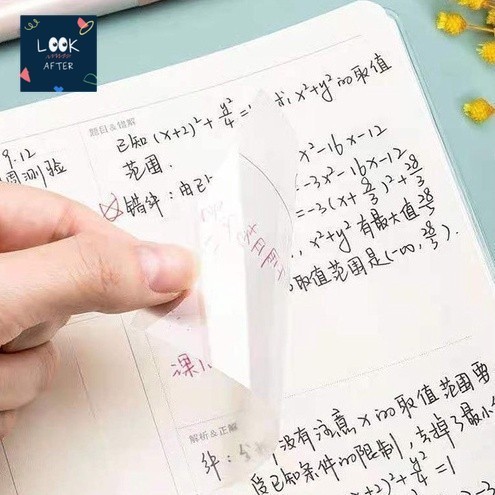 LOOK
AFTER
题目&错解
9.12
周测验
已知(x+2)²+y²/4=1,求x²+y²的取值
范围.
错解:由已
x²-16x-12
=-3x²-16x-12
=-3(x+8/3)²+28/3
x²+y²有最大值28/3
取值范围是(-∞,28/3).
课
解析&正解
没有注意x的取值范围要
已知条件的限制,丢掉了最小
(x+2)²+y²/4=1